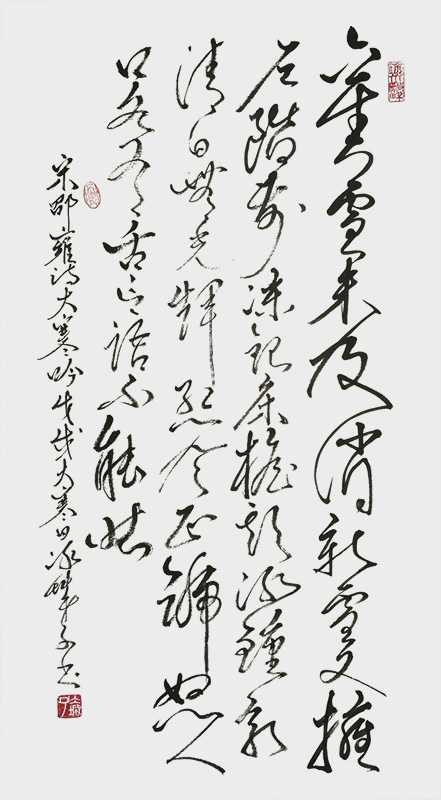 舊雪未及消新雪又擁
户階前凍銀床檐頭冰鐘乳
清日無光輝烈風正號怒人
口各有舌言語不能吐
宋邵雍詩大寒吟戊戌大寒日子书